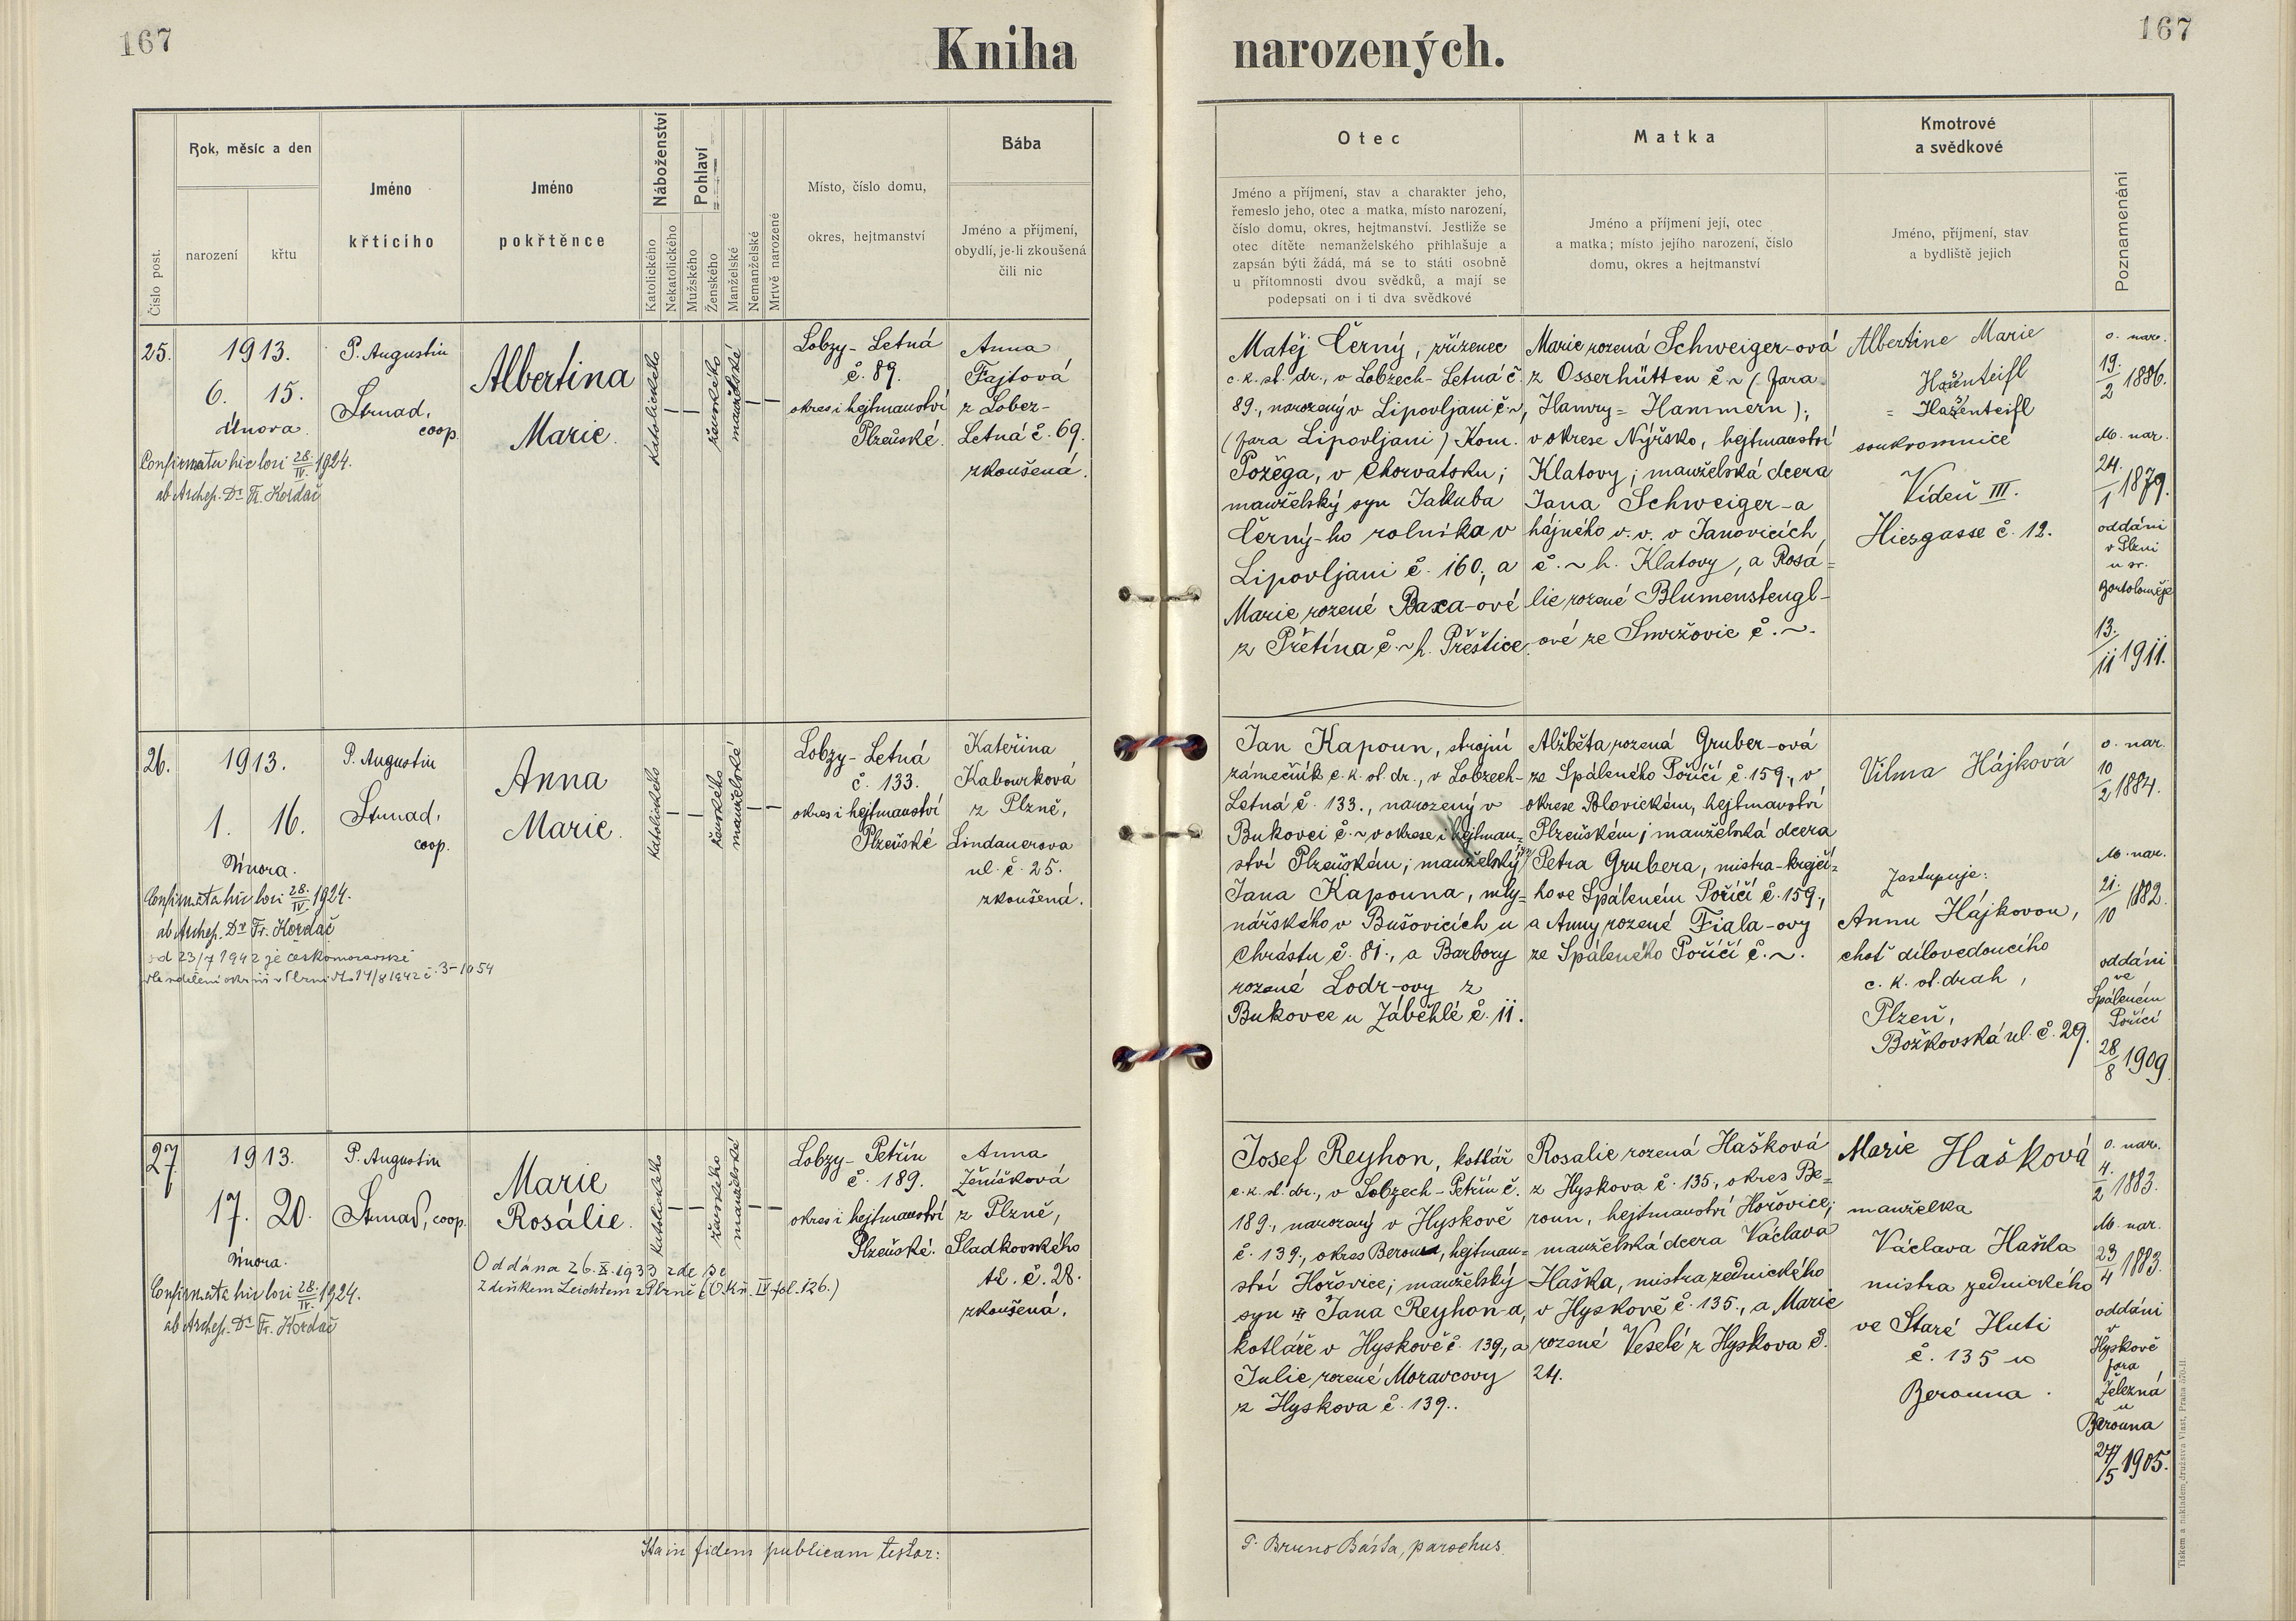 167
Kniha
narozených.
167
Číslo post.
Rok, měsíc a den
narození
křtu
Jméno
křtícího
Jméno
pokřtěnce
Náboženství
Katolického
Nekatolického
Pohlaví
Mužského
Ženského
Manželské
Nemanželské
Mrtvě narozené
Místo, číslo domu,
okres, hejtmanství
Bába
Jméno a příjmení,
obydlí, je-li zkoušená
čili nic
Otec
Jméno a příjmení, stav a charakter jeho,
řemeslo jeho, otec a matka, místo narození,
číslo domu, okres, hejtmanství. Jestliže se
otec dítěte nemanželského přihlašuje a
zapsán býti žádá, má se to státi osobně
u přítomnosti dvou svědků, a mají se
podepsati on i ti dva svědkové
Matka
Jméno a příjmení její, otec
a matka; místo jejího narození, číslo
domu, okres a hejtmanství
Kmotrové
a svědkové
Jméno, příjmení, stav
a bydliště jejich
Poznamenání
25.
1913.
6. 15.
února.
Confirmata hic loci 28./IV. 1924.
ab Archep. Dr. Fr. Kordač
P. Augustin
Strnad,
coop.
Albertina
Marie.
katolického
ženského
manželské
Lobzy-Letná
č. 89.
okres i hejtmanství
Plzeňské.
Anna
Fajtová
z Lobez-
Letná č. 69.
zkoušená.
Matěj Černý, zřízenec
c. k. st. dr., v Lobzech-Letná č.
89., narozený v Lipovljani č. ~,
(fara Lipovljani) Kom.
Požega, v Chorvatsku;
manželský syn Jakuba
Černý-ho rolníka v
Lipovljani č. 160., a
Marie rozené Baxa-ové
z Přetína č. ~ h. Přeštice.
Marie rozená Schweiger-ová
z Osserhütten č ~ (fara
Hamry = Hammern);
v okrese Nýrsko, hejtmanství
Klatovy; manželská dcera
Jana Schweiger-a
hajného v. v. v Janovicích,
č. ~ h. Klatovy, a Rosa=
lie rozené Blumenstengl-
ové ze Smržovic č. ~.
Albertine Marie
Hasenteifl
= Hasenteifl
soukromnice
Vídeň III.
Hiesgasse č. 12.
o. nar.
19./2 1886.
M. nar.
24./1 1879.
oddáni
v Plzni
u sv.
Bartoloměje
13./11 1911.
26.
1913.
1. 16.
Února.
Confirmata hic loci 28./IV. 1924.
ab Archep. Dr Fr. Kordač
od 23/7 1942 je českomoravské
P. Augustin
Strnad,
coop.
Anna
Marie.
katolického
ženského
manželské
Lobzy-Letná
č. 133.
okres i hejtmanství
Plzeňské
Kateřina
Kabourková
z Plzně,
Lindauerova
ul. č. 25.
zkoušená.
Jan Kapoun, strojní
zámečník c. k. st. dr., v Lobzech-
Letná č. 133., narozený v
Bukovci č. ~ v okrese i hejtman=
ství Plzeňském; manželský syn
Jana Kapouna, mly=
nářského v Bušovicích u
Chrástu č. 81., a Barbory
rozené Lodr-ovy z
Bukovce u Záběhlé č. 11.
Alžběta rozená Gruber-ová
ze Spáleného Poříčí č. 159., v
okrese Blovickém, hejtmanství
Plzeňském; manželská dcera
Petra Grubera, mistra-krejčí=
ho ve Spáleném Poříčí č. 159.,
a Anny rozené Fiala-ovy
ze Spáleného Poříčí č. ~.
Vilma Hájková
Zastupuje:
Annu Hájkovou,
choť dílovedoucího
c. k. st. drah,
Plzeň,
Božkovská ul. č. 29.
o. nar.
10/2 1884.
M. nar.
21./10 1882.
oddáni
ve
Spáleném
Poříčí
28/8 1909.
27
1913.
17. 20.
Února.
Confirmata hic loci 28./IV. 1924.
ab Archep. Dr Fr. Kordač
P. Augustin
Strnad, coop.
Marie
Rosálie.
Oddána 26. X. 1933 zde se
Zdeňkem Leichtem z Plzně (O. kn. IV. fol. 126.)
katolického
ženského
manželské
Lobzy-Petřín
č. 189.
okres i hejtmanství
Plzeňské.
Anna
Ženíšková
z Plzně,
Sladkovského
tř. č. 28.
zkoušená.
Josef Reyhon, kotlář
c. k. st. dr., v Lobzech-Petřín č.
189., narozený v Hyskově
č. 139., okres Beroun, hejtman=
ství Hořovice; manželský
syn Jana Reyhon-a,
kotláře v Hyskově č. 139., a
Julie rozené Moravcovy
z Hyskova č. 139..
Rosalie rozená Hašková
z Hyskova č. 135., okres Be=
roun, hejtmanství Hořovice;
manželská dcera Václava
Haška, mistra zednického
v Hyskově č. 135., a Marie
rozené Veselé z Hyskova č.
24.
Marie Hašková
manželka
Václava Haška
mistra zednického
ve Staré Huti
č. 135 u
Berouna.
o. nar.
4./2 1883.
M. nar.
23/4 1883.
oddáni
v
Hyskově
fara
Železná
u
Berouna
27/5 1905.
Ita in fidem publicam testor:
P. Bruno Bárta, parochus
Tiskem a nákladem družstva Vlast, Praha 570-II.